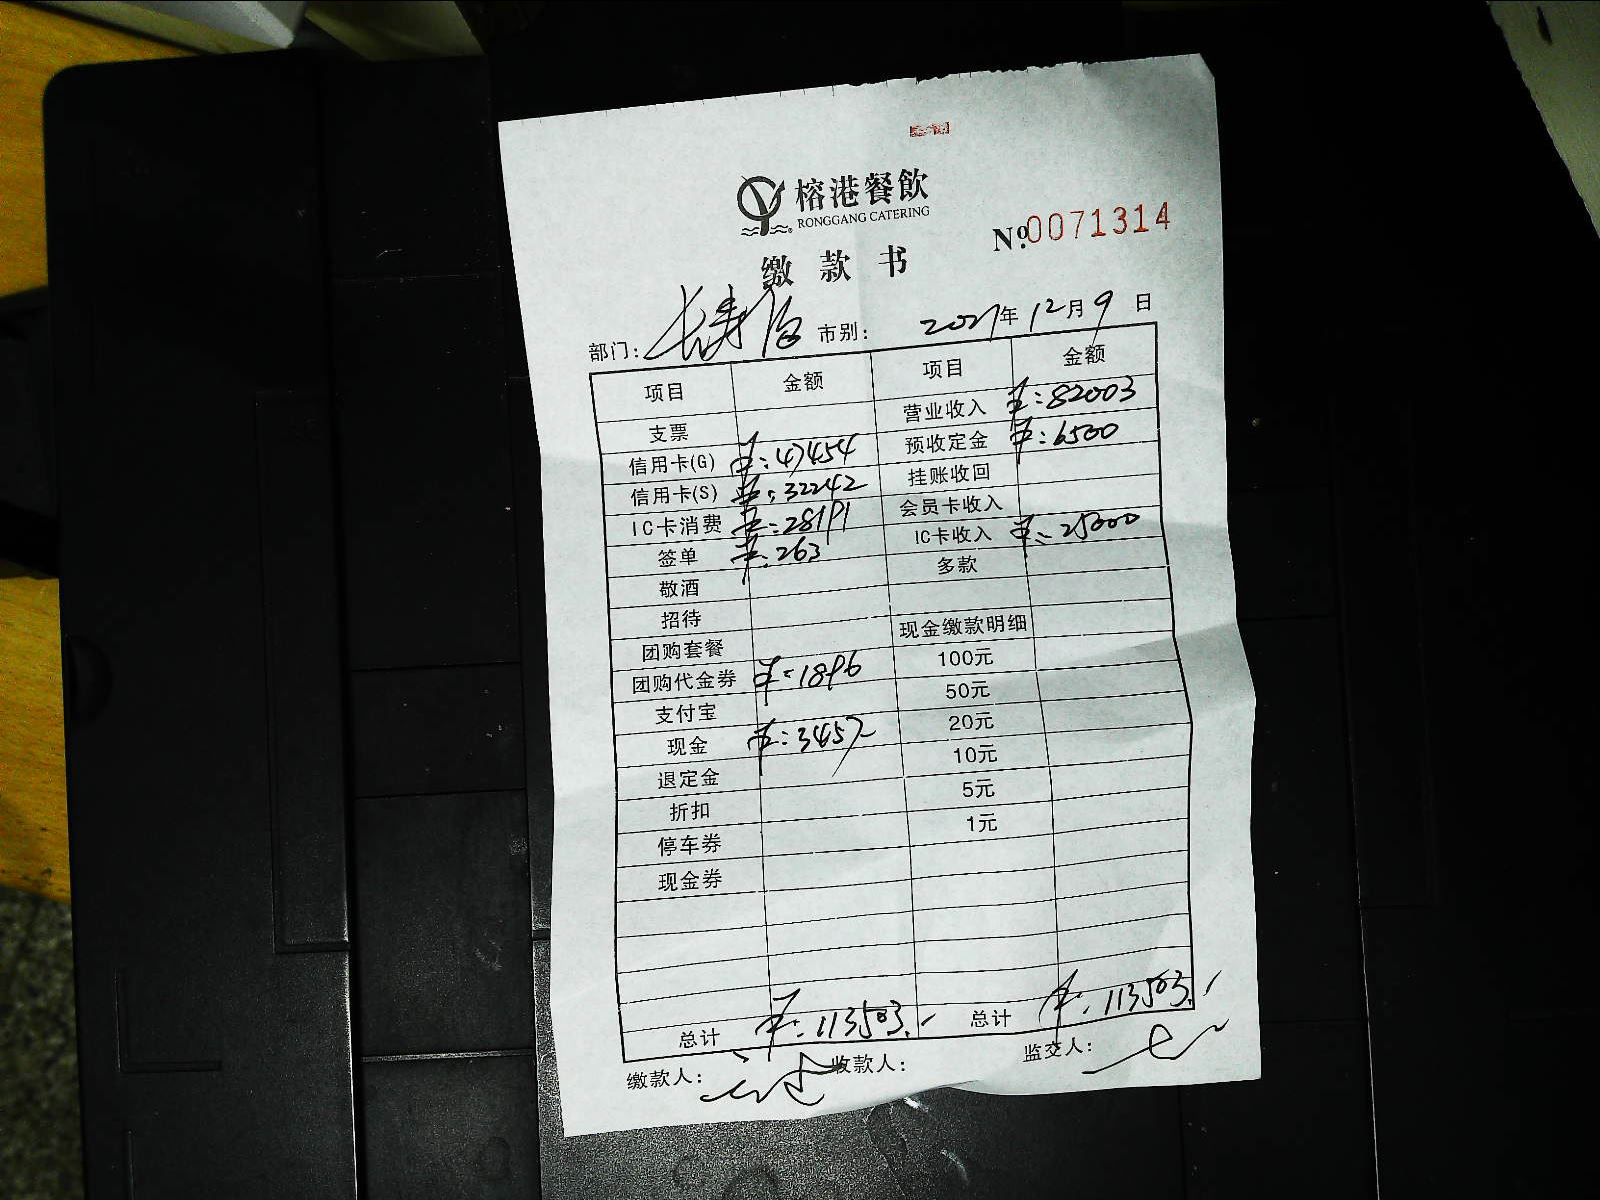 榕港餐飲
RONGGANG CATERING
No.0071314
缴款书
部门：长寿 市别： 2021年12月9日
项目 金额 项目 金额
支票 营业收入 ¥:82003
信用卡(G) ¥:47454 预收定金 ¥:6500
信用卡(S) ¥:32242 挂账收回
IC卡消费 ¥:28191 会员卡收入
签单 ¥:263 IC卡收入 ¥:25000
敬酒 多款
招待
团购套餐 现金缴款明细
团购代金券 ¥:1896 100元
支付宝 50元
现金 ¥:3457 20元
退定金 10元
折扣 5元
停车券 1元
现金券
总计 ¥:113503. 总计 ¥:113503.
缴款人： 收款人： 监交人：